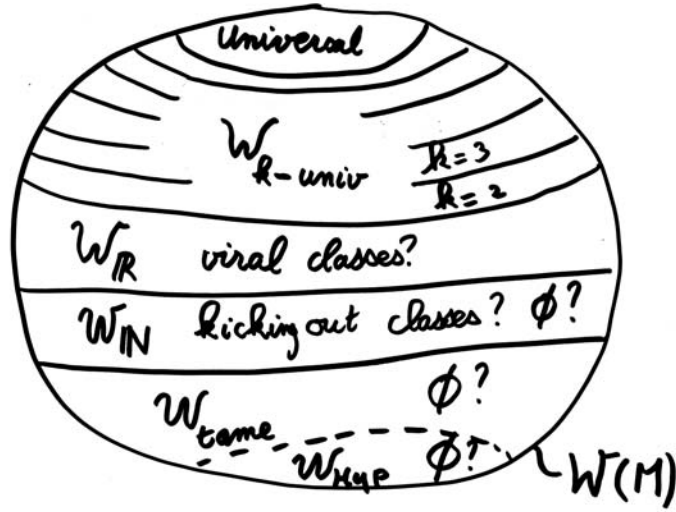 Universal
W_{k-univ}
k=3
k=2
W_{IR} viral classes?
W_{IN} kicking out classes? ϕ?
W_{tame} ϕ?
W_{Hyp} ϕ?
W(M)